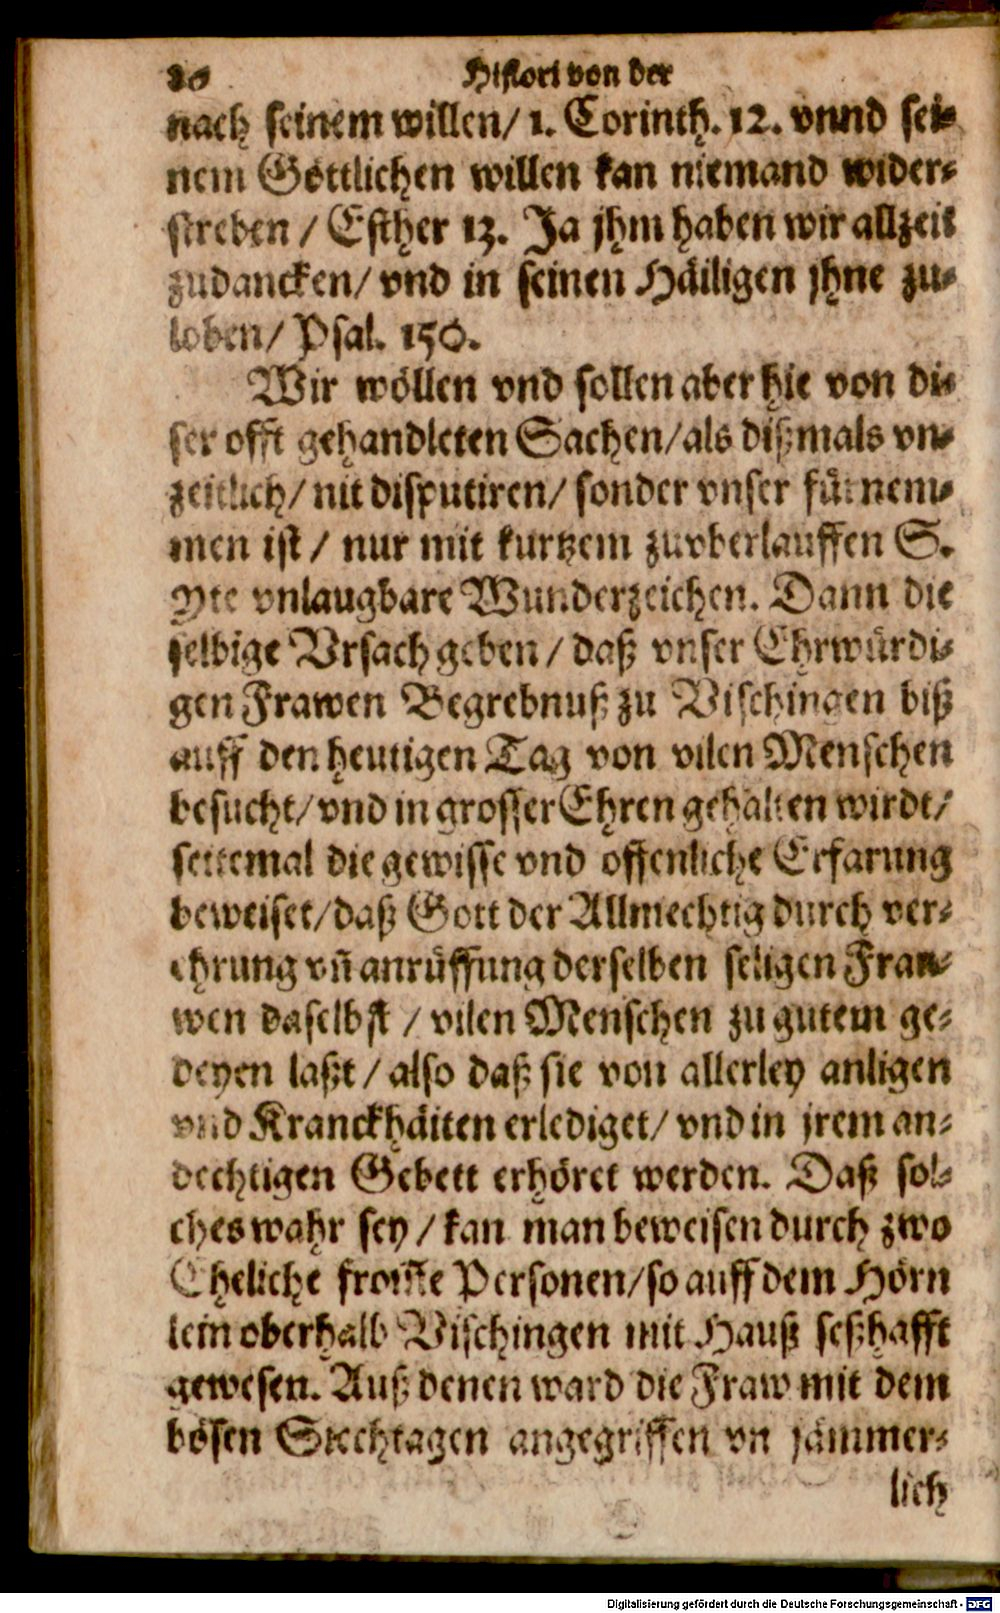 20 Histori von der
nach seinem willen/ 1. Corinth. 12. vnnd sei-
nem Göttlichen willen kan niemand wider-
streben / Esther 13. Ja jhm haben wir allzeit
zudancken/ vnd in seinen Häiligen jhne zu-
loben/ Psal. 150.
Wir wöllen vnd sollen aber hie von di-
ser offt gehandleten Sachen/ als dißmals vn-
zeitlich/ nit disputiren/ sonder vnser fürnem-
men ist / nur mit kurtzem zuvberlauffen S.
Yte vnlaugbare Wunderzeichen. Dann die
selbige Vrsach geben / daß vnser Ehrwürdi-
gen Frawen Begrebnuß zu Vischingen biß
auff den heutigen Tag von vilen Menschen
besucht/ vnd in grosser Ehren gehalten wirdt/
seitemal die gewisse vnd offenliche Erfarung
beweiset/ daß Gott der Allmechtig durch ver-
ehrung vñ anrüffung derselben seligen Fraw-
wen daselbst / vilen Menschen zu gutem ge-
deyen laßt / also daß sie von allerley anligen
vnd Kranckhäiten erlediget/ vnd in jrem an-
dechtigen Gebett erhöret werden. Daß sol-
ches wahr sey / kan man beweisen durch zwo
Eheliche from̃e Personen/ so auff dem Hörn
lein oberhalb Vischingen mit Hauß seßhafft
gewesen. Auß denen ward die Fraw mit dem
bösen Stechtagen angegriffen vn jämmer-
lich
Digitalisierung gefördert durch die Deutsche Forschungsgemeinschaft - DFG